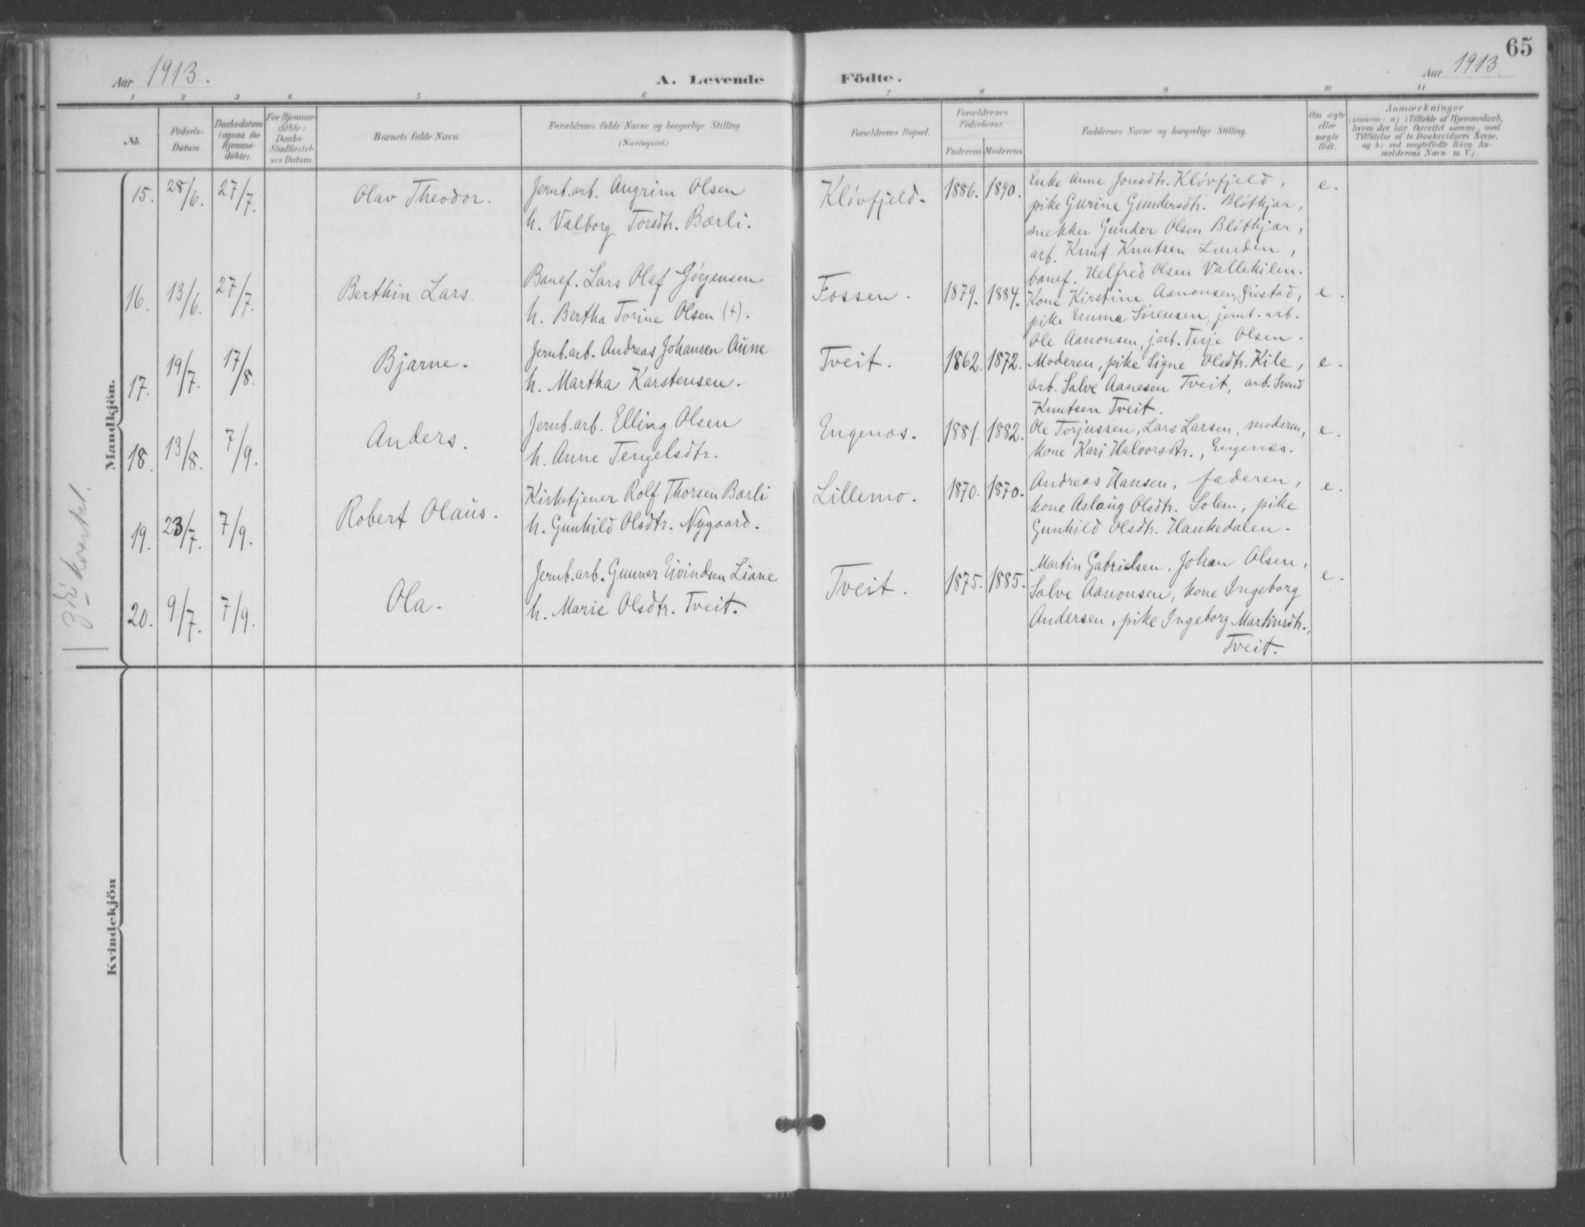 65
Aar 1913.
A. Levende Födte.
Aar 1913
1 2 3 4 5 6 7 8 9 10 11
No.
Födsels-Datum
Daabsdatum (ogsaa for Hjemmedöbte).
For Hjemmedöbte: Daabs-Stadfæstelses Datum
Barnets fulde Navn.
Forældrenes fulde Navne og borgerlige Stilling (Næringsvei.)
Forældrenes Bopæl.
Forældrenes Födselsaar.
Faderens Moderens
Faddernes Navne og borgerlige Stilling.
Om ægte eller uægte födt.
Anmærkninger
Mandkjön.
15. 28/6. 27/7. Olav Theodor.
Jernb.arb. Angrim Olsen
h. Valborg Torsdtr. Bærli.
Klövfjeld. 1886. 1890.
Enke Anne Jonsdtr. Klövfjeld,
pike Gurine Gundersdtr. Blötkjær,
snekker Gunder Olsen Blötkjær,
arb. Knut Knutsen Lunden,
banef. Uelfred Olsen Vallekilen.
e.
16. 13/6. 27/7. Berthin Lars.
Banef. Lars Olaf Jörgensen
h. Bertha Torine Olsen (+).
Fossen. 1879. 1884.
Kone Kirstine Aanonsen, Fiestad,
pike Emma Sörensen, jernb. arb.
Ole Aanonsen, j.arb. Terje Olsen.
e.
17. 19/7. 17/8. Bjarne.
Jernb.arb. Andreas Johansen Aüne
h. Martha Karstensen.
Tveit. 1862. 1872.
Moderen, pike Signe Olsdtr. Kile,
arb. Salve Aanesen Tveit, arb. Svend
Knutsen Tveit.
e.
18. 13/8. 7/9. Anders.
Jernb.arb. Elling Olsen
h. Anne Tengelsdtr.
Engenæs. 1881. 1882.
Ole Torjussen, Lars Larsen, moderen,
kone Kari Halvorsdtr., Engenes.
e.
19. 23/7. 7/9. Robert Olaüs.
Kirketjener Rolf Thorsen Bærli
h. Gunhild Olsdtr. Nygaard.
Lillemo. 1870. 1870.
Andreas Hansen, faderen,
kone Aslaüg Olsdtr. Solem, pike
Gunhild Olsdtr. Haukedalen.
e.
20. 9/7. 7/9. Ola.
Jernb.arb. Gunner Eivindsen Liane
h. Marie Olsdtr. Tveit.
Tveit. 1875. 1885.
Martin Gabrielsen, Johan Olsen,
Salve Aanonsen, kone Ingeborg
Andersen, pike Ingeborg Martinsdtr.,
Tveit.
e.
3die kvartal.
Kvindekjön